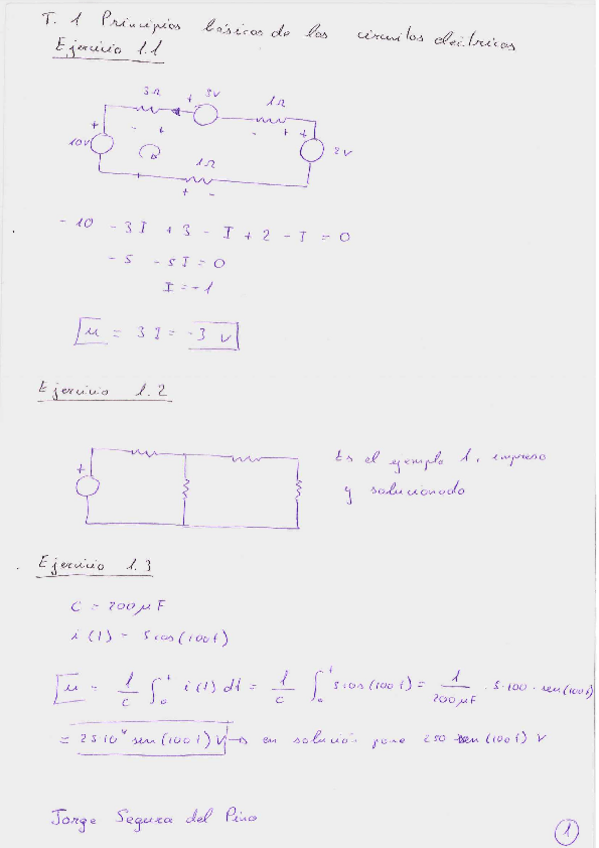 T. 1 Principios básicos de los circuitos eléctricos
Ejercicio 1.1
3Ω + 3V 1Ω
+ - + - + +
10V 2V
1Ω
+ -
- 10 - 3I + 3 - I + 2 - I = 0
- 5 - 5I = 0
I = - 1
u = 3I = -3 V
Ejercicio 1.2
+
Es el ejemplo 1, impreso
y solucionado
Ejercicio 1.3
C = 200μF
i(t) = 5cos(100t)
u = 1/C ∫₀ᵗ i(t) dt = 1/C ∫₀ᵗ 5cos(100t) = 1/200μF · 5·100·sen(100t)
= 25·10⁴ sen(100t) V → en solución pone 250 sen(100t) V
Jorge Segura del Pino
1